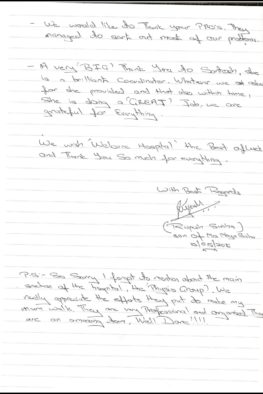 - We would like to Thank your PRO's. They
managed to sort out most of our problems.
- A very 'BIG' Thank You to Santosh, she
is a brilliant Coordinator. Whatever we
for she provided and that also within time.
She is doing a 'GREAT' Job, we are
grateful for Everything.
We wish 'Welcare Hospital' the Best of luck
and Thank You So much for everything.
With Best Regards
(Rupesh Sinha)
son of Mrs
P.S - So Sorry I forgot to mention about the main
section of the hospital, the 'Physio Group'. We
really appreciate the efforts they put to make my
mum walk. They are very Professional and organised They
are an amazing team, Well Done '!!!!